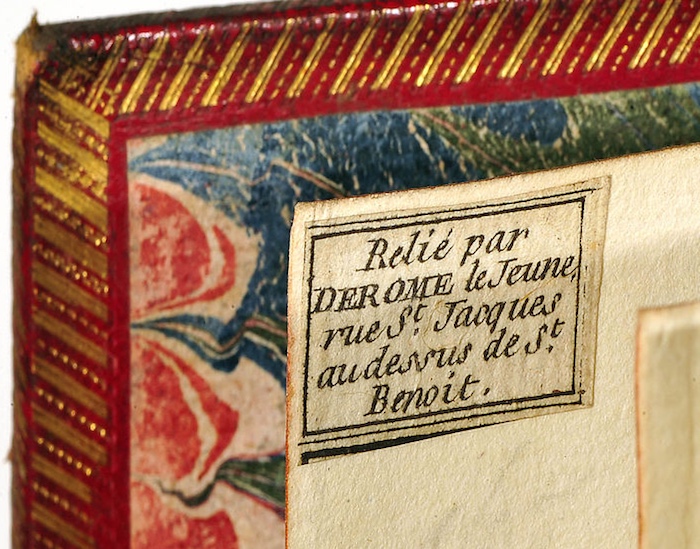 Relié par
DEROME le Jeune,
rue St. Jacques
au dessus de St.
Benoit.